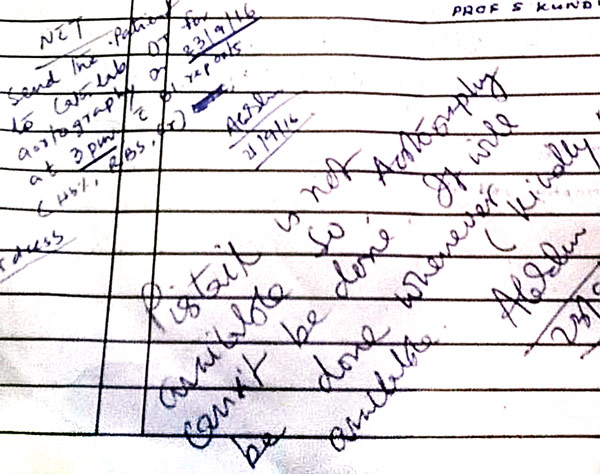 PROF S KUND
NET
Send the patient
to Cathlab OT for
aortography on 23/9/16
at 3 pm c̄ all reports
(Hb%, RBS, Cr)
21/9/16
dress
Pigtail is not
available so, Aortography
can't be done. It will
be done whenever
available (Kindly
23/9